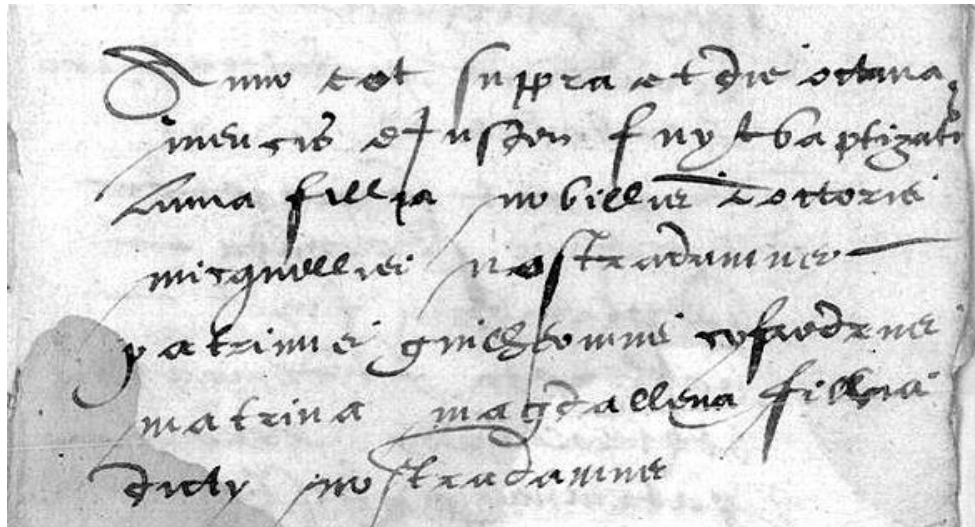 Anno cot suppra et die octava
mencis ejusdem fuyt baptizata
Anna fillia nobillis dottoris
micquellis nostradamus
patrinus guilheomus
matrina magdallena fillia
dicty nostradamus